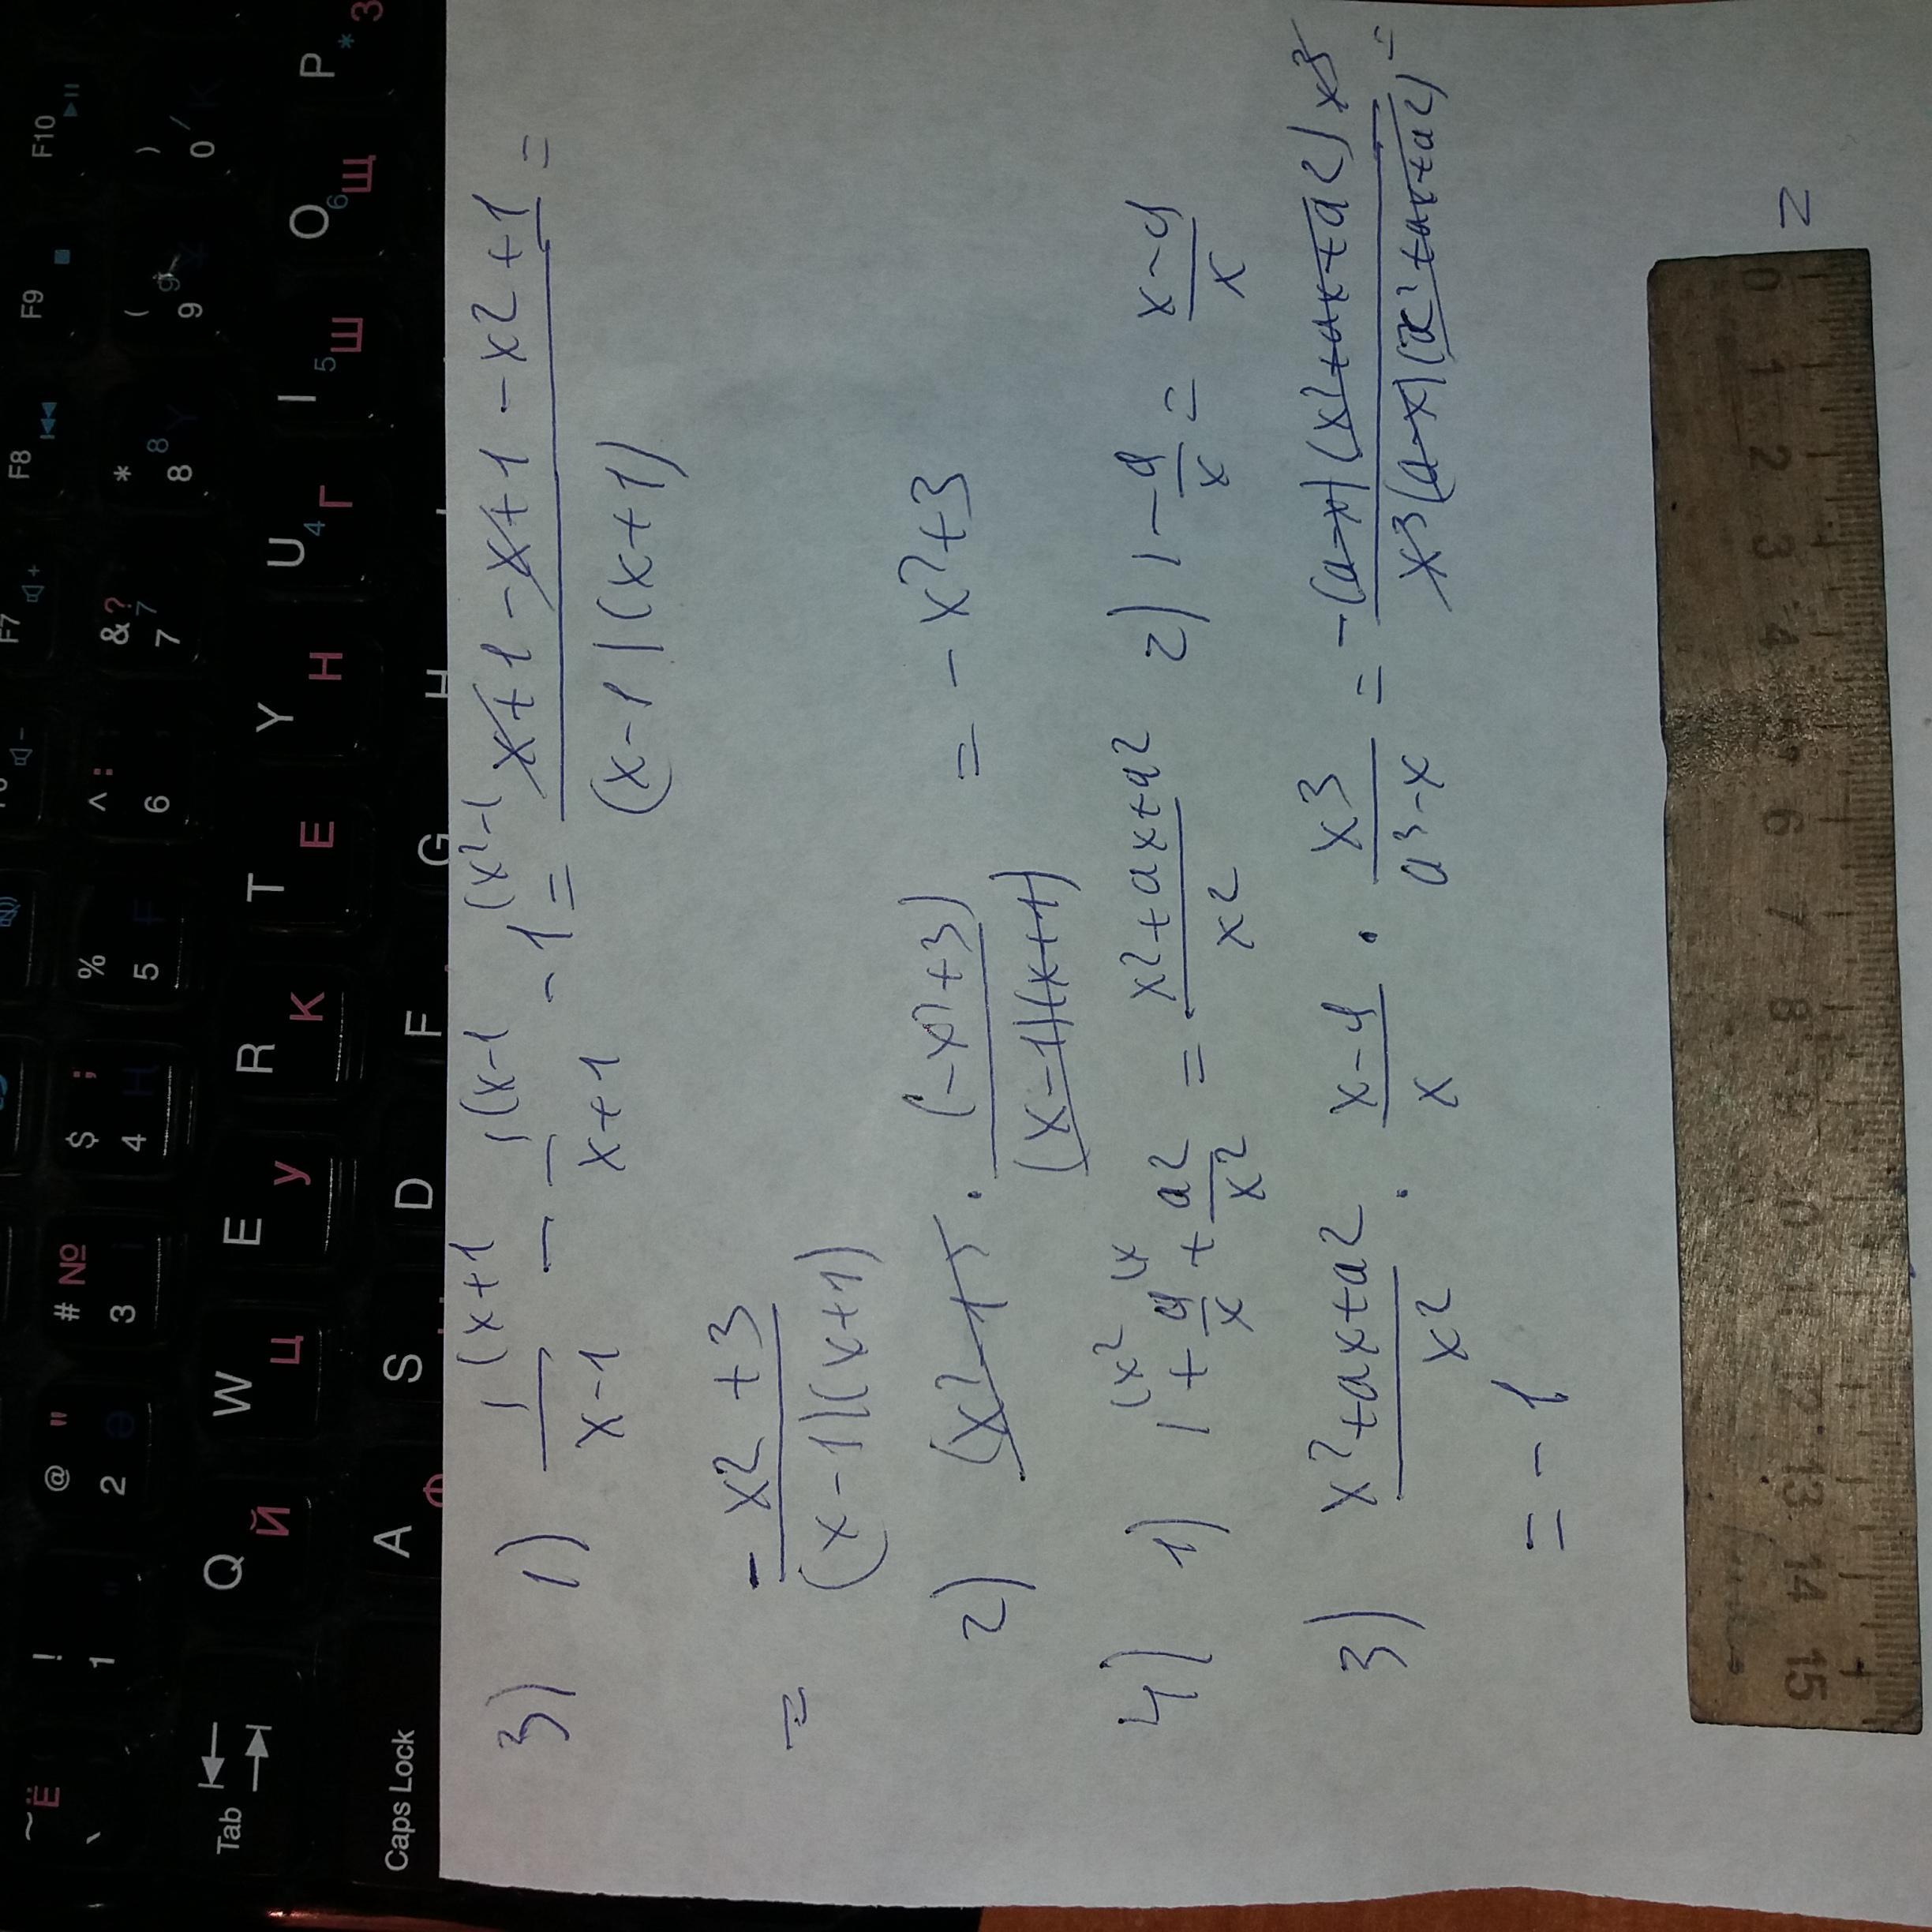 ~ Ё ` ! 1 @ " 2 # № 3 $ ; 4 % 5 ^ : 6 & ? 7 7 * 8 8 ( 9 9 ) 0 /
F7 F8 F9 F10
Tab Q Й W Ц E У R К T Е Y Н U Г 4 I Ш 5 O Щ 6 P З *
Caps Lock A Ф S D F G H
3) 1) 1(x+1 / x-1 - 1(x-1 / x+1 - 1(x²-1 = x+1-x+1-x2+1 / (x-1)(x+1) =
= -x2+3 / (x-1)(x+1)
2) (x2-1) · (-x²+3) / (x-1)(x+1) = -x²+3
4) 1) 1(x2 + a(x / x + a2 / x2 = x²+ax+a2 / x2 2) 1-a/x = x-a / x
3) x²+ax+a2 / x2 · x-a / x · x3 / a³-x = -(a-x)(x²+ax+a2)x3 / x3(a-x)(x²+ax+a2) =
= -1
=
0 1 2 3 4 5 6 7 8 9 10 11 12 13 14 15